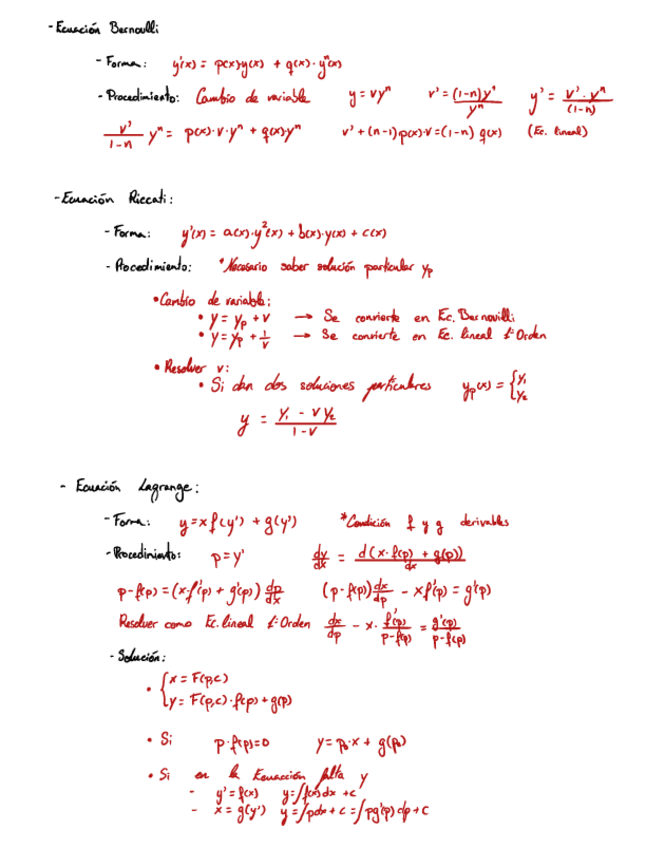 - Ecuación Bernoulli
- Forma: y'(x) = p(x)·y(x) + q(x)·yⁿ(x)
- Procedimiento: Cambio de variable y = vyⁿ v' = (1-n)y'/yⁿ y' = v'·yⁿ/(1-n)
v'/(1-n) yⁿ = p(x)·v·yⁿ + q(x)·yⁿ v' + (n-1)p(x)·v = (1-n) q(x) (Ec. lineal)
- Ecuación Riccati:
- Forma: y'(x) = a(x)·y²(x) + b(x)·y(x) + c(x)
- Procedimiento: *Necesario saber solución particular yp
• Cambio de variable:
• y = yp + v → Se convierte en Ec. Bernouilli
• y = yp + 1/v → Se convierte en Ec. lineal 1º Orden
• Resolver v:
• Si dan dos soluciones particulares yp(x) = { y₁ y₂
y = (y₁ - v y₂)/(1 - v)
- Ecuación Lagrange:
- Forma: y = x f(y') + g(y') *Condición f y g derivables
- Procedimiento: p = y' dy/dx = d(x·f(p) + g(p))/dx
p - f(p) = (x·f'(p) + g'(p)) dp/dx (p - f(p)) dx/dp - x f'(p) = g'(p)
Resolver como Ec. lineal 1º Orden dx/dp - x· f'(p)/(p - f(p)) = g'(p)/(p - f(p))
- Solución:
• { x = F(p,c)
y = F(p,c)·f(p) + g(p)
• Si p·f(p) = 0 y = p₀·x + g(p₀)
• Si en la Ecuacción falta y
- y' = f(x) y = ∫f(x)dx + c
- x = g(y') y = ∫pdx + c = ∫pg'(p) dp + c